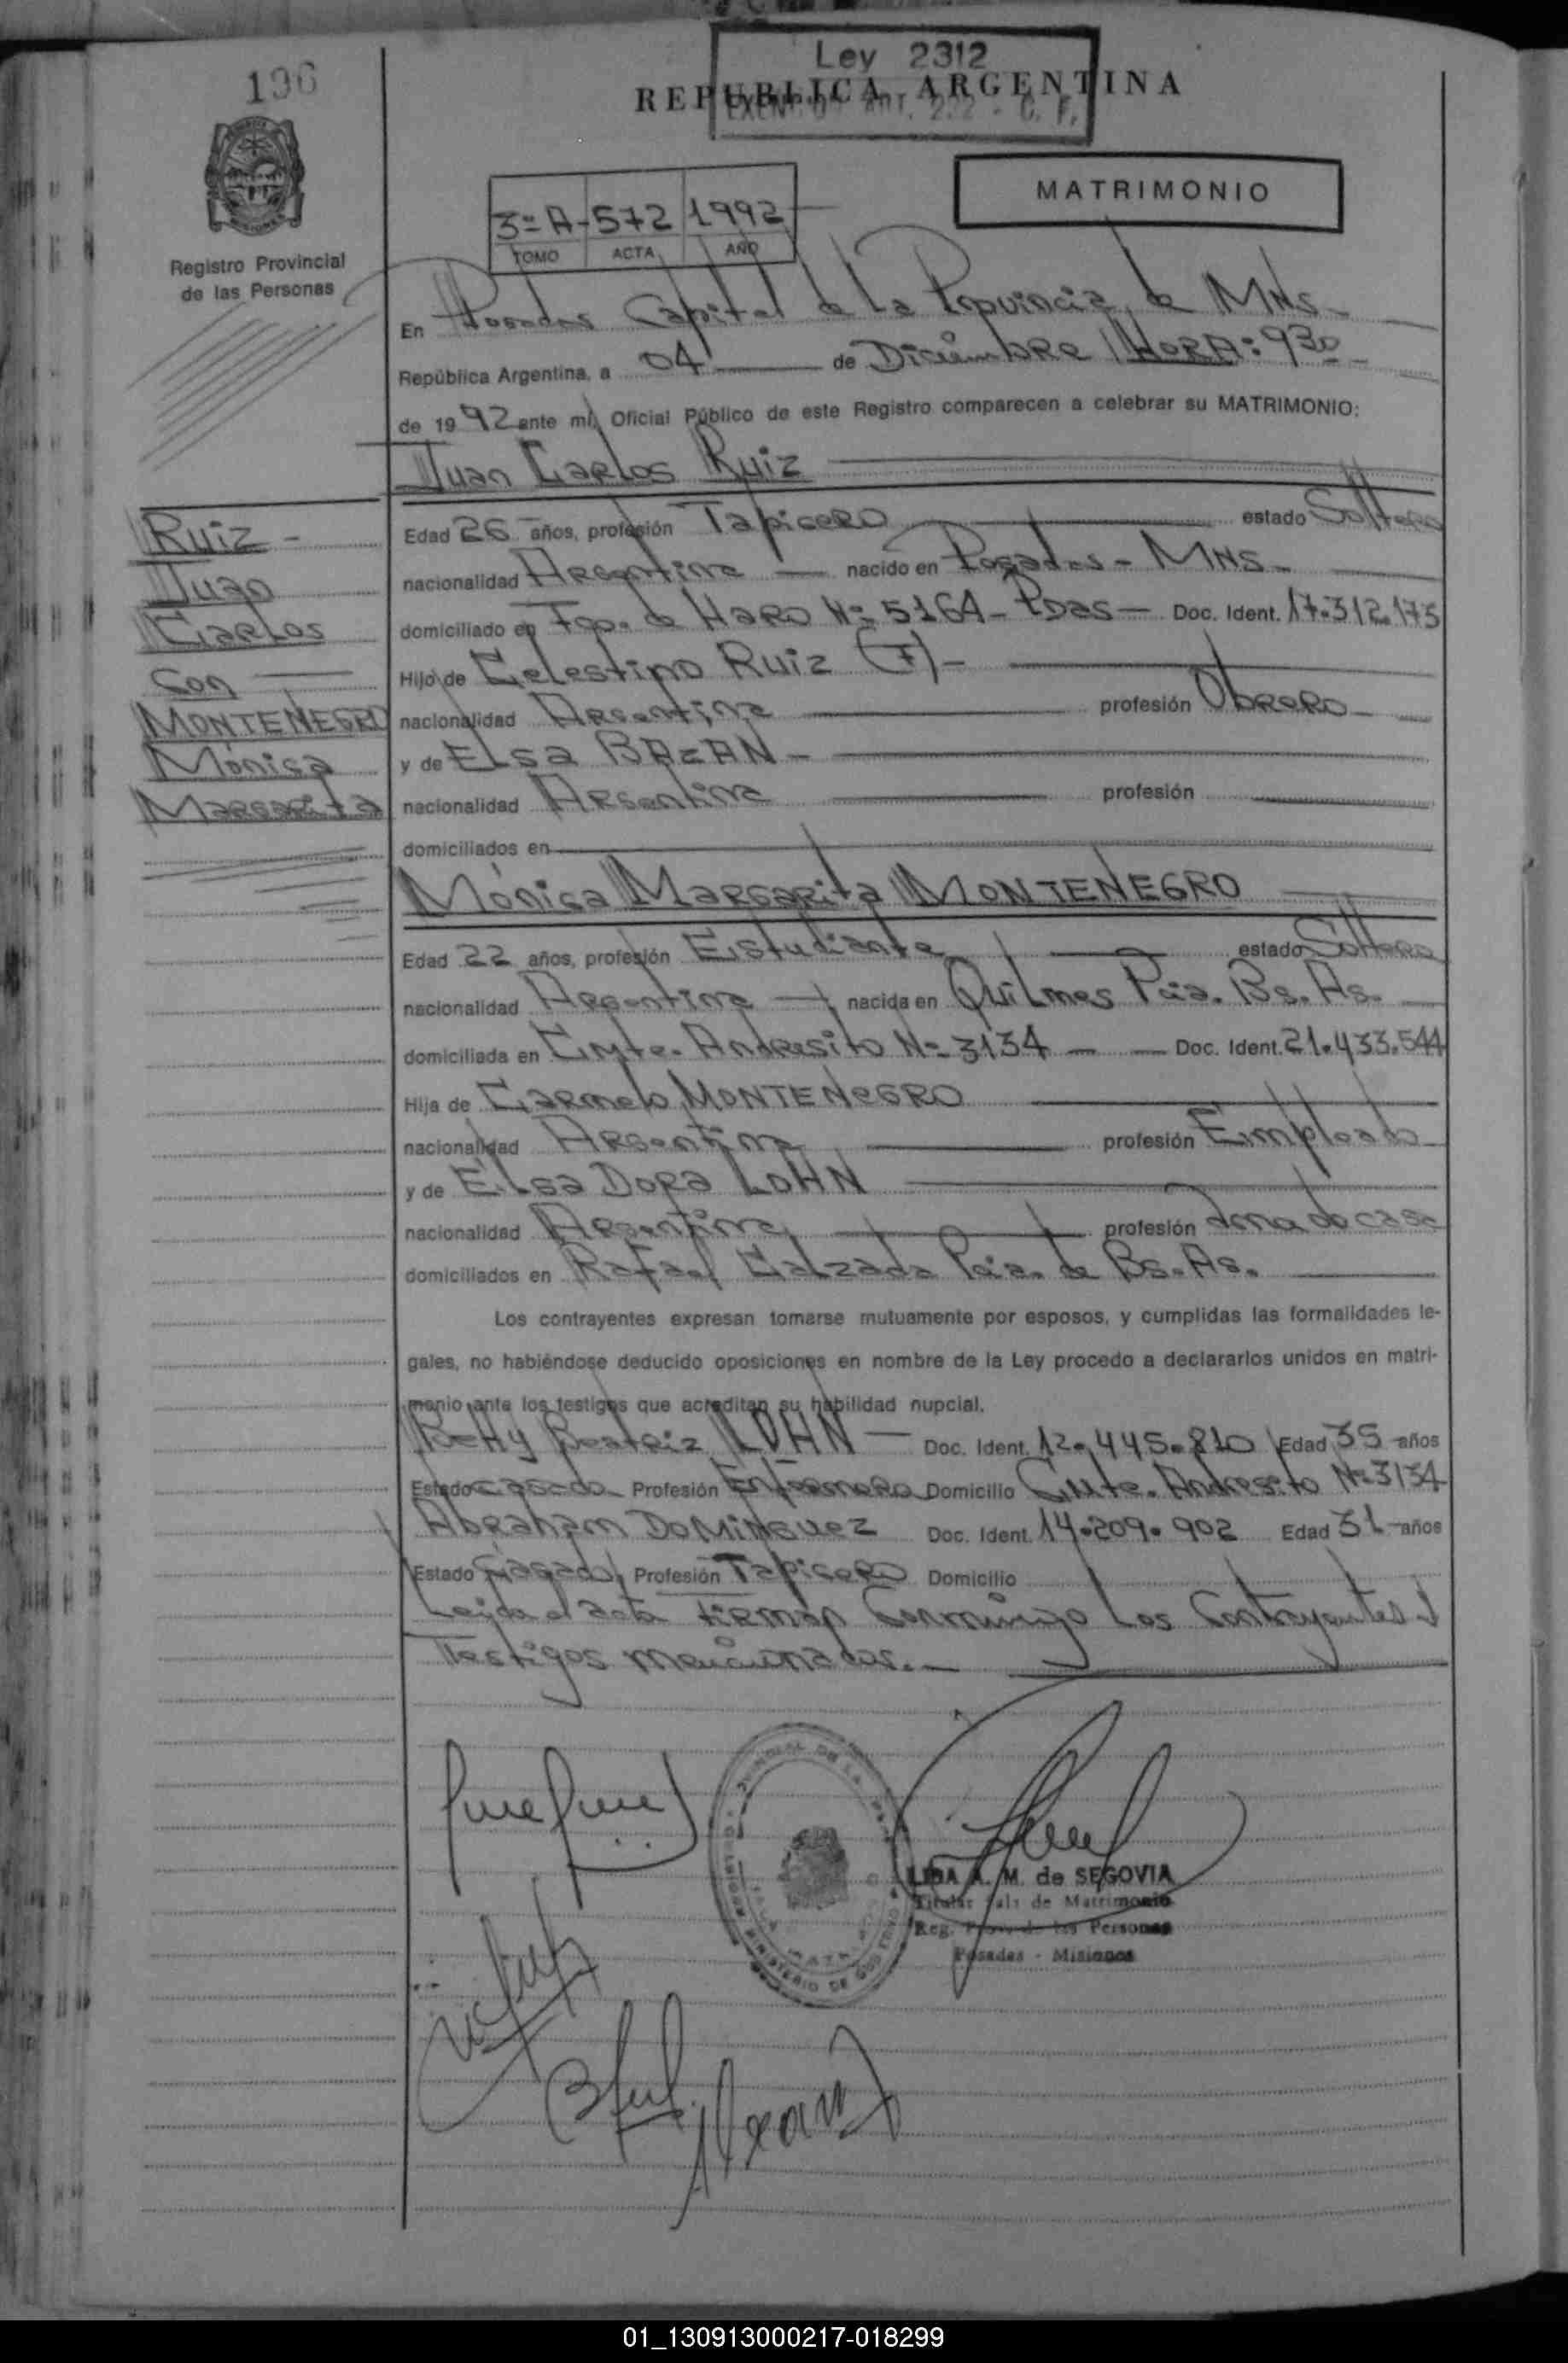 196
Ley 2312
REPUBLICA ARGENTINA
MATRIMONIO
3º A - 572 1992
TOMO ACTA AÑO
Registro Provincial
de las Personas
En Posadas Capital de La Provincia de MNS-
República Argentina, a 04 de Diciembre HORA: 930
de 1992 ante mí, Oficial Público de este Registro comparecen a celebrar su MATRIMONIO:
Juan Carlos Ruiz
Ruiz -
Juan
Carlos
Con
MONTENEGRO
Mónica
Margarita
Edad 26 años, profesión Tapicero estado Soltero
nacionalidad Argentina nacido en Posadas - MNS-
domiciliado en Fco. de HARO Nº 5164 - Pdas - Doc. Ident. 17.312.175
Hijo de Celestino Ruiz (F) -
nacionalidad Argentina profesión Obrero
y de Elsa BAZAN -
nacionalidad Argentina profesión
domiciliados en
Mónica Margarita MONTENEGRO
Edad 22 años, profesión Estudiante estado Soltera
nacionalidad Argentina nacida en Quilmes Pcia. Bs. As.
domiciliada en Cmte. Andresito Nº 3134 Doc. Ident. 21.433.544
Hija de Carmelo MONTENEGRO
nacionalidad Argentina profesión Empleado
y de Elsa Dora LOHN
nacionalidad Argentina profesión ama de casa
domiciliados en Rafael Calzada Pcia. de Bs. As.
Los contrayentes expresan tomarse mutuamente por esposos, y cumplidas las formalidades le-
gales, no habiéndose deducido oposiciones en nombre de la Ley procedo a declararlos unidos en matri-
monio ante los testigos que acreditan su habilidad nupcial.
Betty Beatriz LOHN - Doc. Ident. 12.445.810 Edad 35 años
Estado casada Profesión Enfermera Domicilio Cmte. Andresito Nº 3134
Abraham DOMINGUEZ Doc. Ident. 14.209.902 Edad 31 años
Estado Casado Profesión Tapicero Domicilio
Leída el acta firman Conmigo Los Contrayentes y
Testigos mencionados.-
LIDA A. M. de SEGOVIA
Titular Sala de Matrimonio
Reg. Prov. de las Personas
Posadas - Misiones
01_130913000217-018299